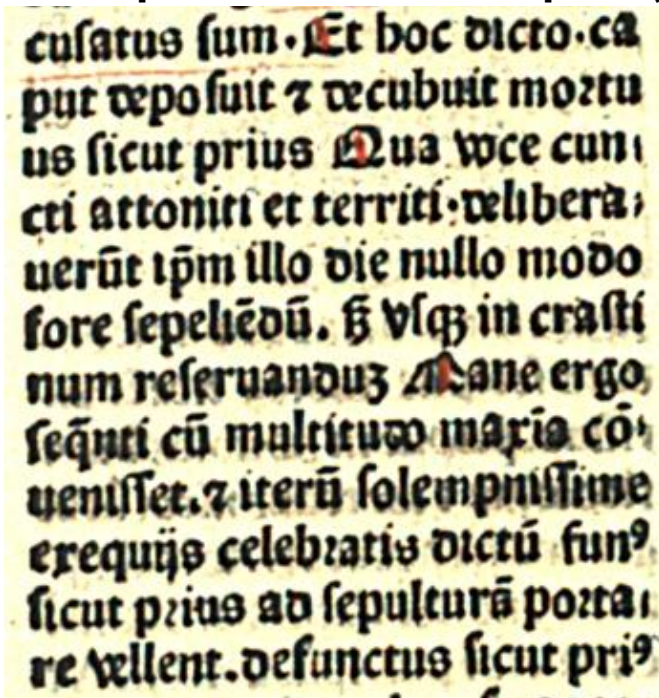 cuſatus ſum. Et hoc dicto. ca
put depoſuit ⁊ decubuit moꝛtu
us ſicut prius Qua voce cun⸗
cti attoniti et territi. delibera⸗
uerūt ip̄m illo die nullo modo
fore ſepeliēdū. ſꝫ vſqꝫ in craſti
num reſeruanduꝫ Mane ergo
ſeq̄nti cū multitudo maxīa cō⸗
ueniſſet. ⁊ iterū ſolempniſſime
exequijs celebꝛatis dictū funꝰ
ſicut pꝛius ad ſepulturā poꝛta⸗
re vellent. defunctus ſicut priꝰ